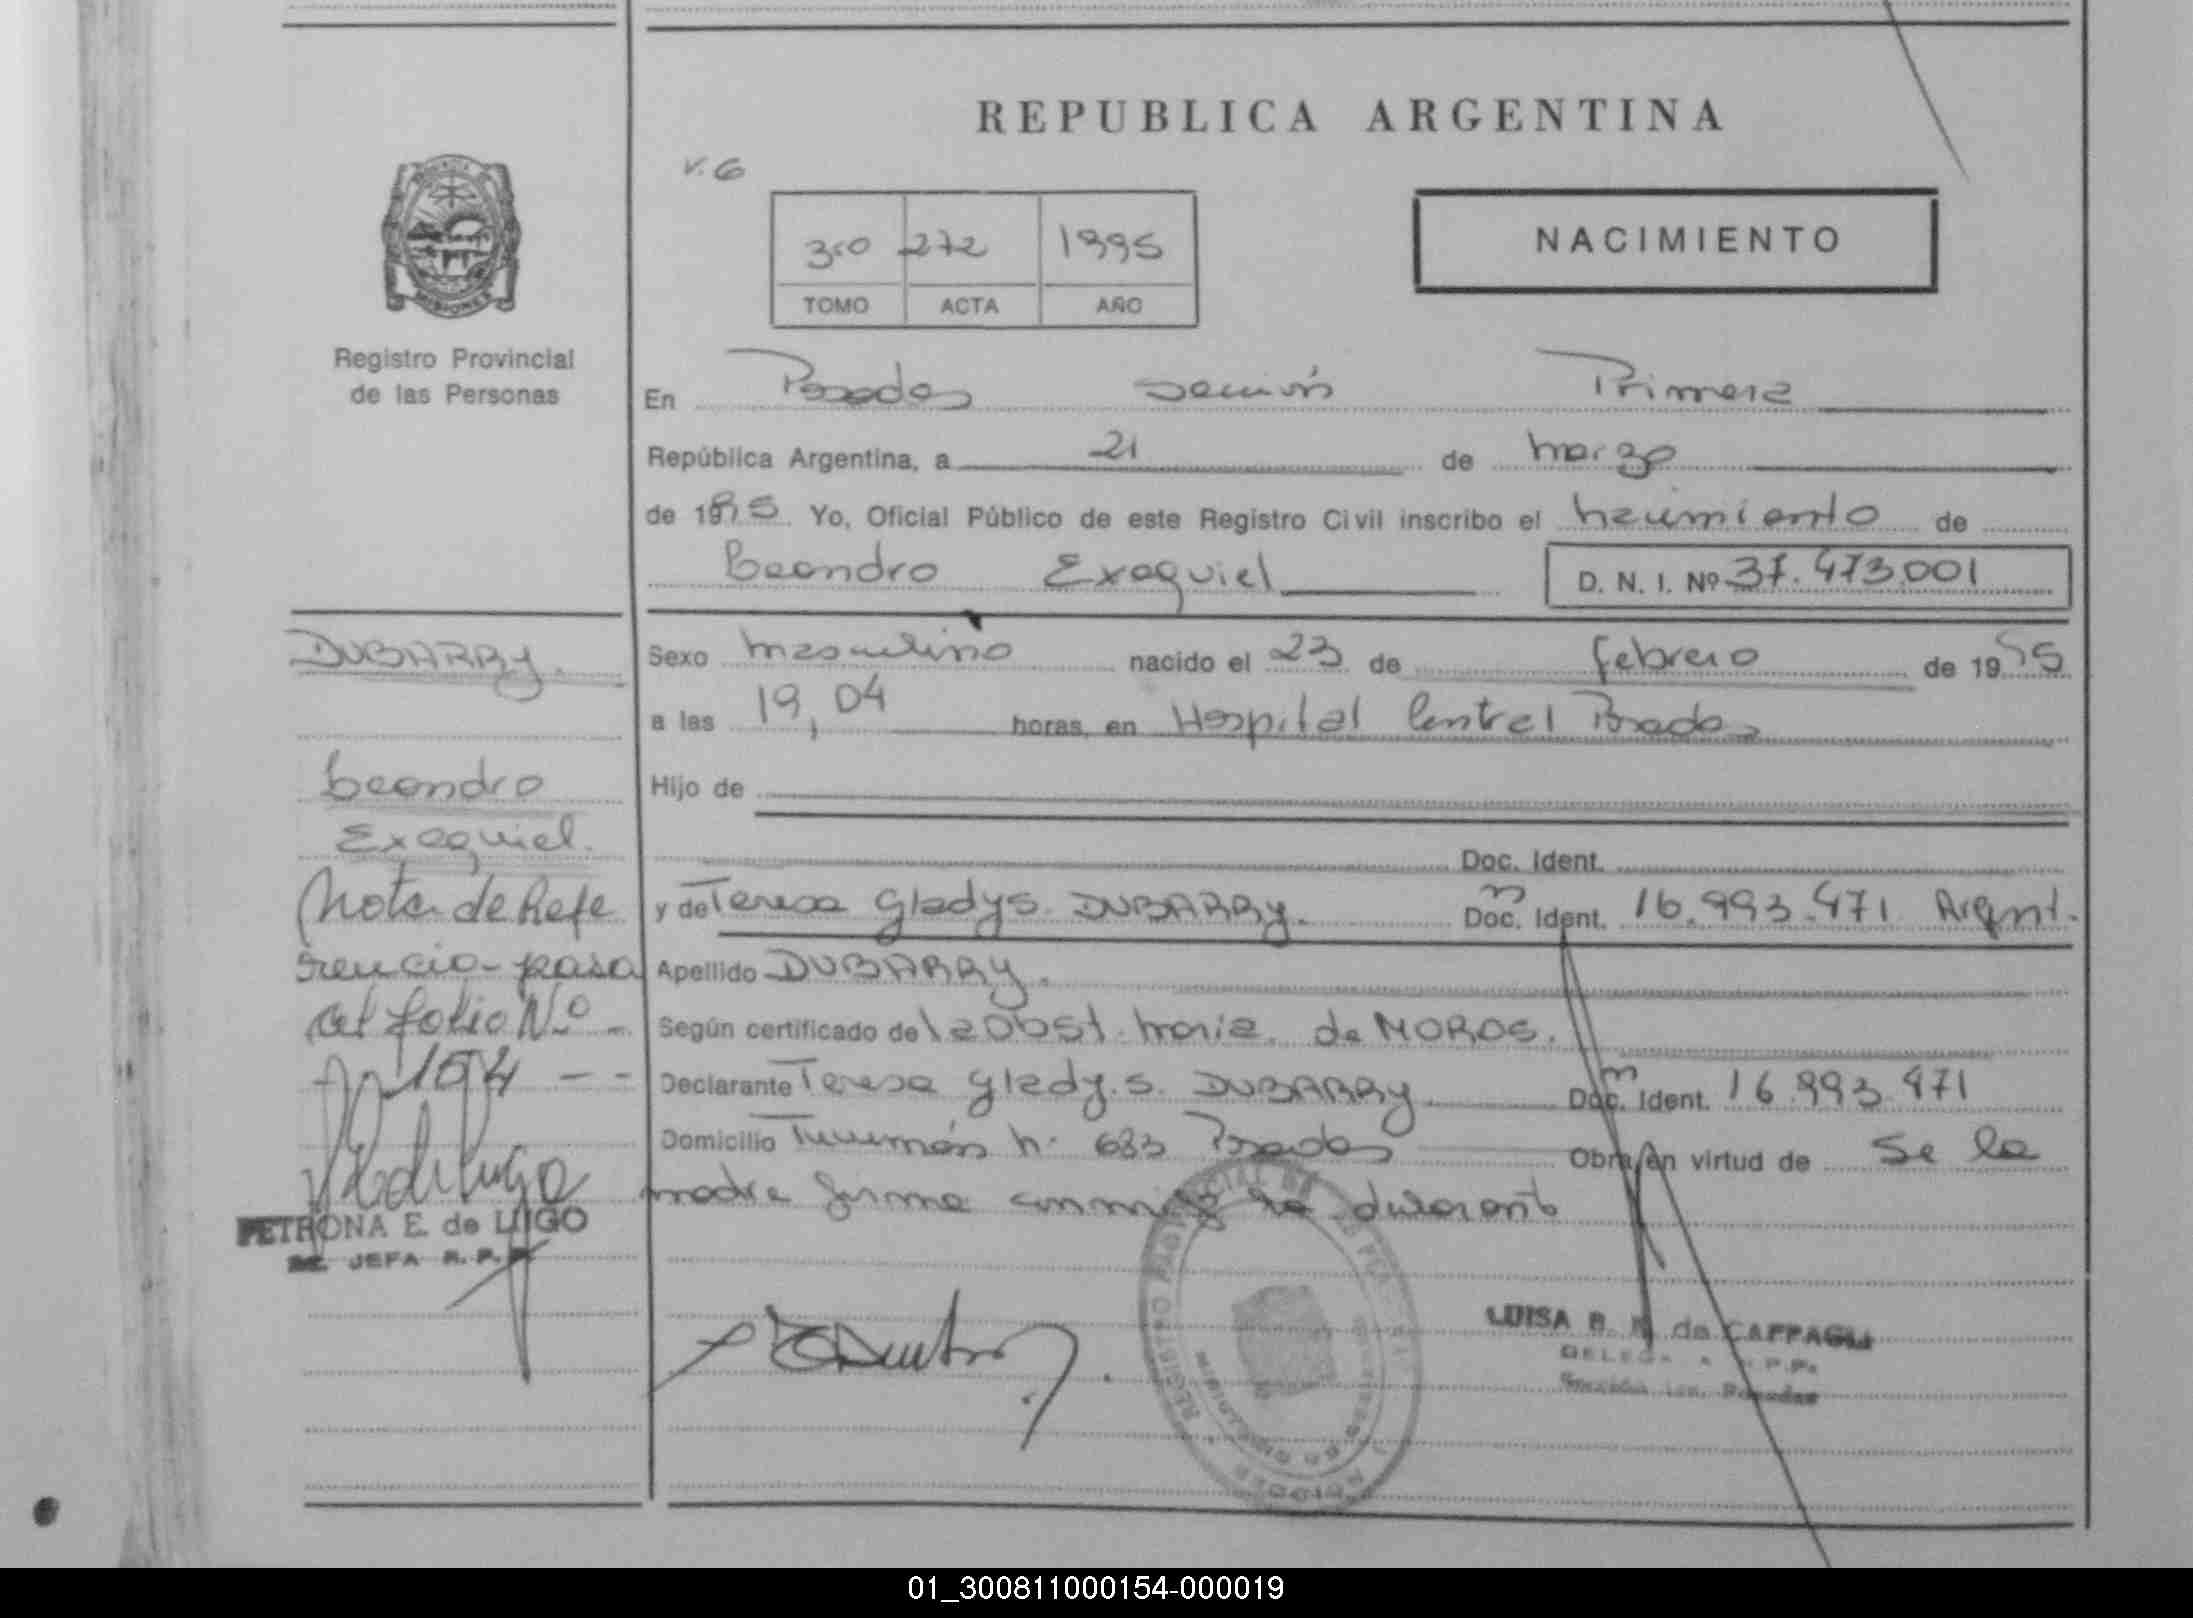 REPUBLICA ARGENTINA
V. 6
272 1995
TOMO ACTA AÑO
NACIMIENTO
MISIONES
Registro Provincial
de las Personas
En Posadas sección Primera
República Argentina, a 21 de marzo
de 1995 Yo, Oficial Público de este Registro Civil inscribo el nacimiento de
Leandro Exequiel D. N. I. Nº 37.473.001
DUBARRY.
Leandro
Exequiel.
Nota de Refe
rencia - pasa
al folio Nº -
154 - -
PETRONA E. de LUGO
JEFA R. P. P.
Sexo masculino nacido el 23 de febrero de 1995
a las 19,04 horas, en Hospital Central Posadas
Hijo de
Doc. Ident.
y de Teresa Gladys DUBARRY. Doc. Ident. 16.993.471 Argent.
Apellido DUBARRY.
Según certificado de la Obst. Maria de MOROS.
Declarante Teresa Gladys DUBARRY Doc. Ident. 16.993.471
Domicilio Tucumán n. 683 Posadas Obra en virtud de Se la
madre firma conmigo declarante
REGISTRO PROVINCIAL DE LAS PERSONAS
LUISA R. de CAPPAGLI
DELEGADA R.P.P.
Sección 1ra. Posadas
01_300811000154-000019